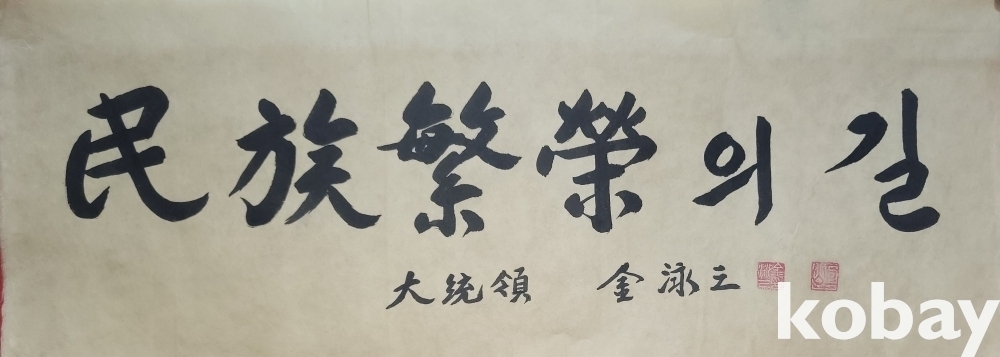 民族繁榮의길
大統領 金泳三
kobay